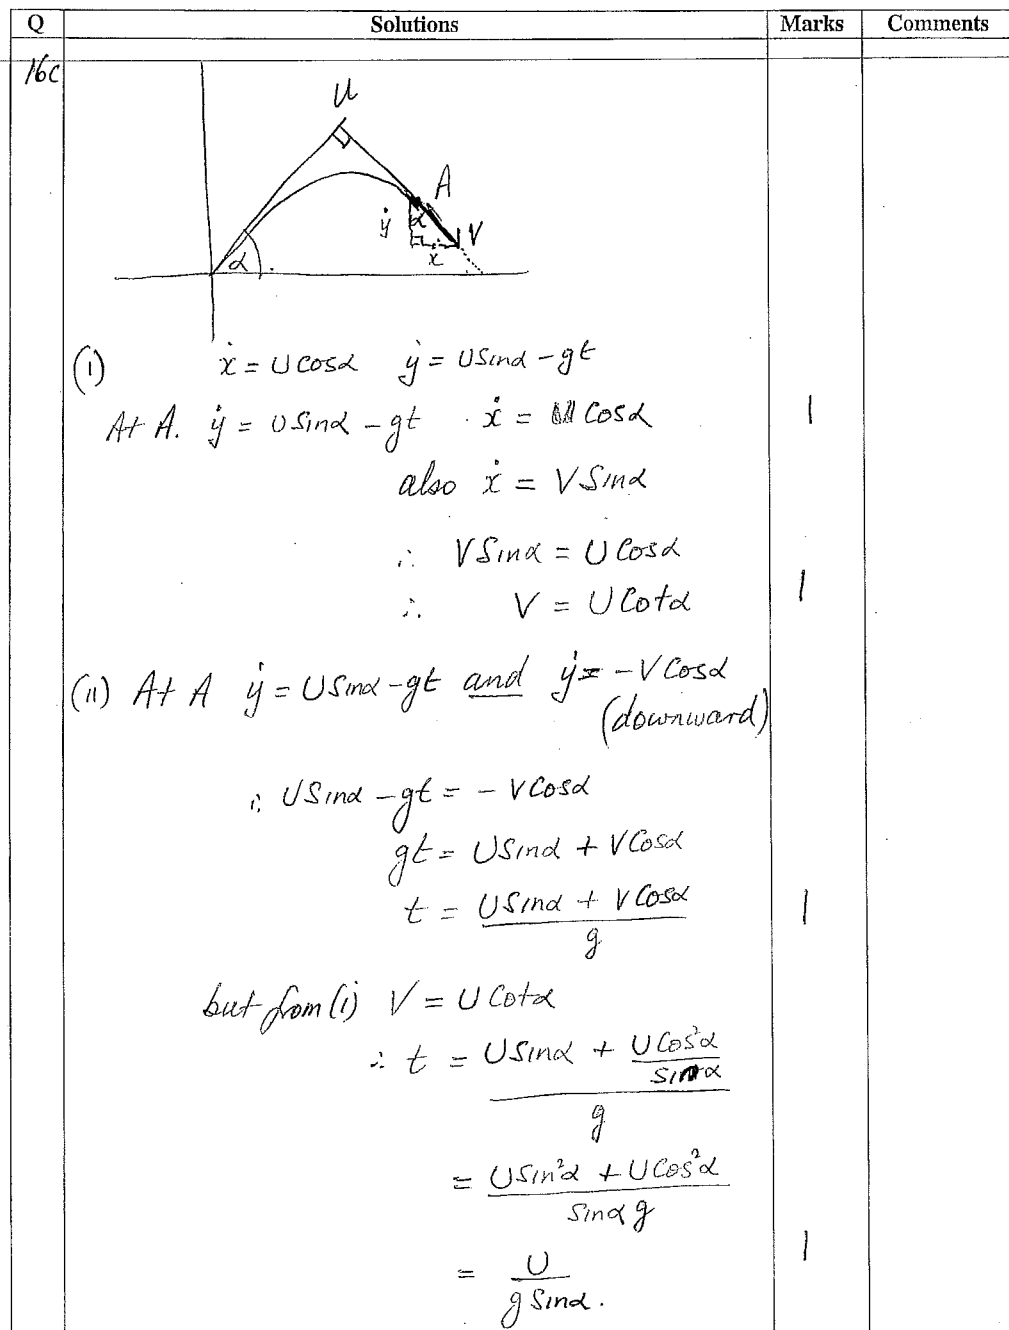 Q Solutions Marks Comments
16c
U
A
ẏ α V
ẋ
α
(i) ẋ = U cosα ẏ = U sinα - gt
At A. ẏ = U sinα - gt . ẋ = U cosα 1
also ẋ = V sinα
∴ V sinα = U cosα
∴ V = U cotα 1
(ii) At A ẏ = U sinα - gt and ẏ = - V cosα
(downward)
∴ U sinα - gt = - V cosα
gt = U sinα + V cosα
t = (U sinα + V cosα)/g 1
but from (i) V = U cotα
∴ t = (U sinα + U cos²α/sinα)/g
= (U sin²α + U cos²α)/(sinα g)
= U/(g sinα). 1